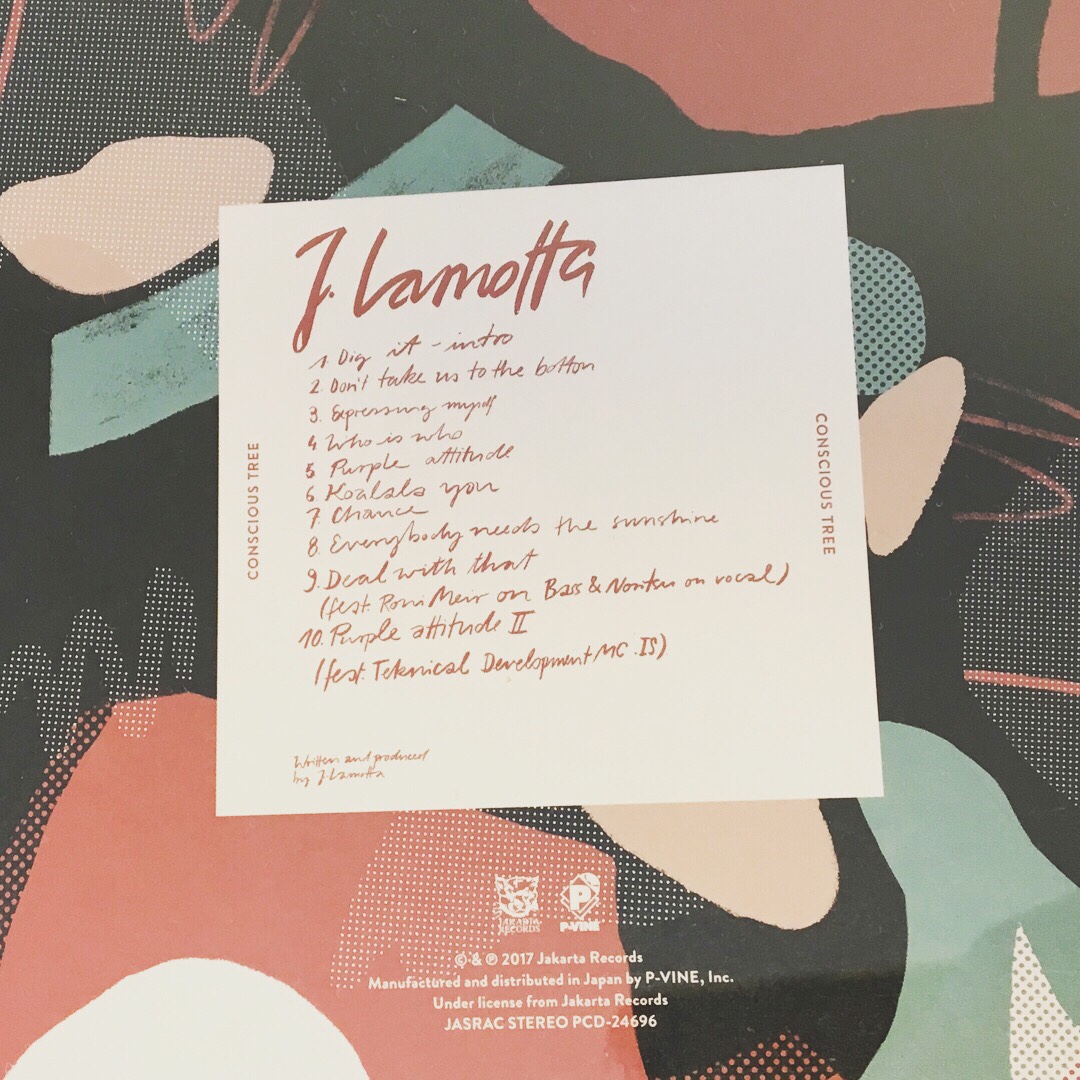 J. Lamotta
1. Dig it - intro
2. Don't take us to the bottom
3. Expressing myself
4. Who is who
5. Purple attitude
6. Koalals you
7. Chance
8. Everybody needs the sunshine
9. Deal with that
(feat. Roni Meir on Bass & Noritsu on vocal)
10. Purple attitude II
(feat. Teknical Development MC .IS)
CONSCIOUS TREE
CONSCIOUS TREE
Written and produced
by J. Lamotta
JAKARTA
RECORDS
P
P-VINE
© & ℗ 2017 Jakarta Records
Manufactured and distributed in Japan by P-VINE, Inc.
Under license from Jakarta Records
JASRAC STEREO PCD-24696